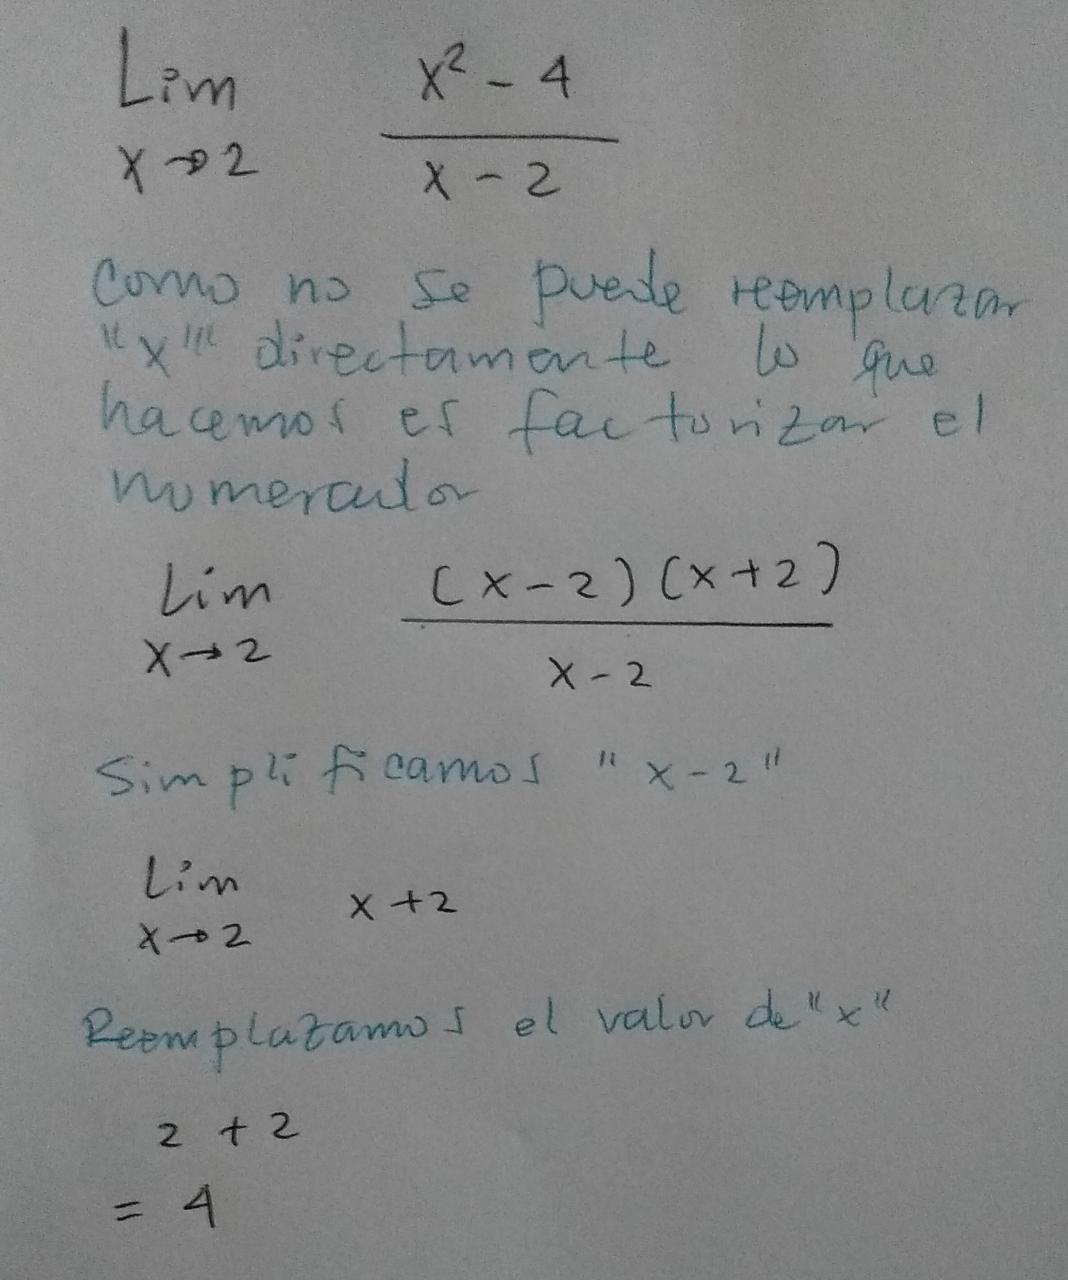 Lim x² - 4
x→2 x - 2
Como no se puede reemplazar
"x" directamente lo que
hacemos es factorizar el
numerador
Lim (x-2)(x+2)
x→2 x-2
Simplificamos "x-2"
Lim x+2
x→2
Reemplazamos el valor de "x"
2 + 2
= 4